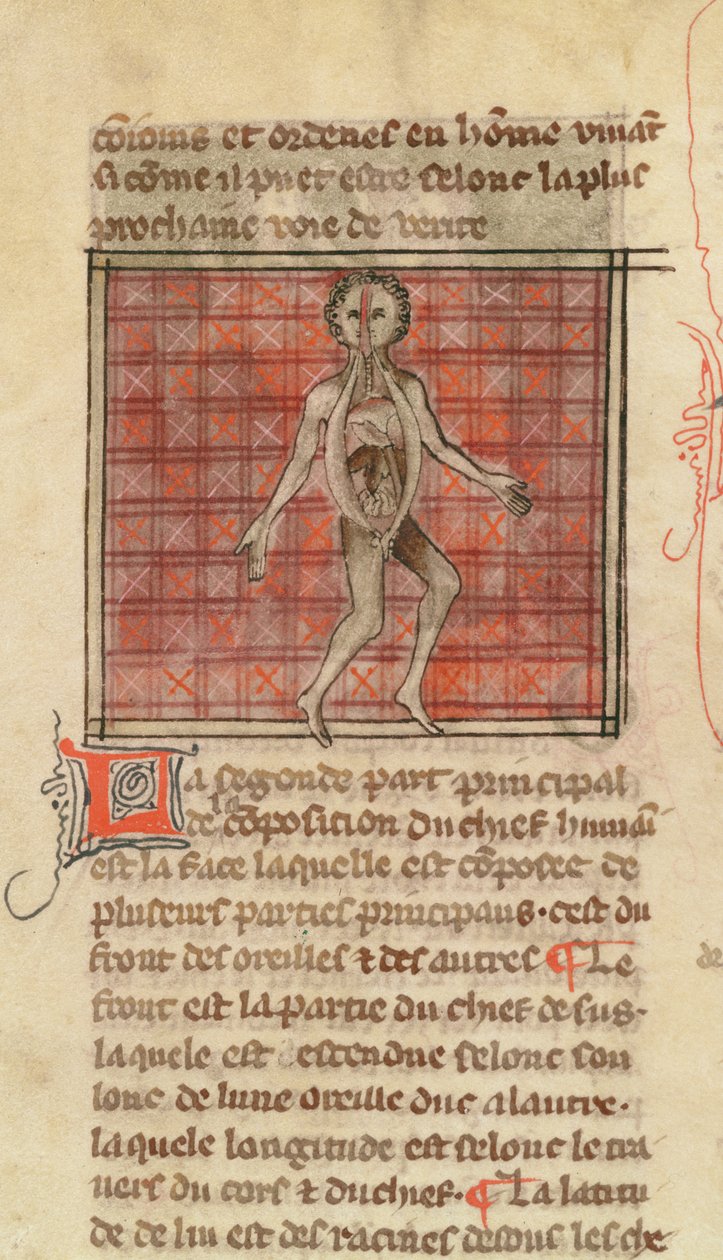 cōioins et ordenes en hōme viuāt
si cōme il puet estre selonc la plus
prochaine voie de verite
La segonde part principal
de la cōposicion du chief humaī
est la face laquelle est cōposee de
pluseurs parties principaus · cest du
front des oreilles ⁊ des autres ¶ Le
front est la partie du chief desus ·
laquele est estendue selonc son
lonc de lune oreille duc a lautre ·
laquele longitude est selonc le tra
uers du cors ⁊ du chief · ¶ La latitu
de de lui est des racines desous les che